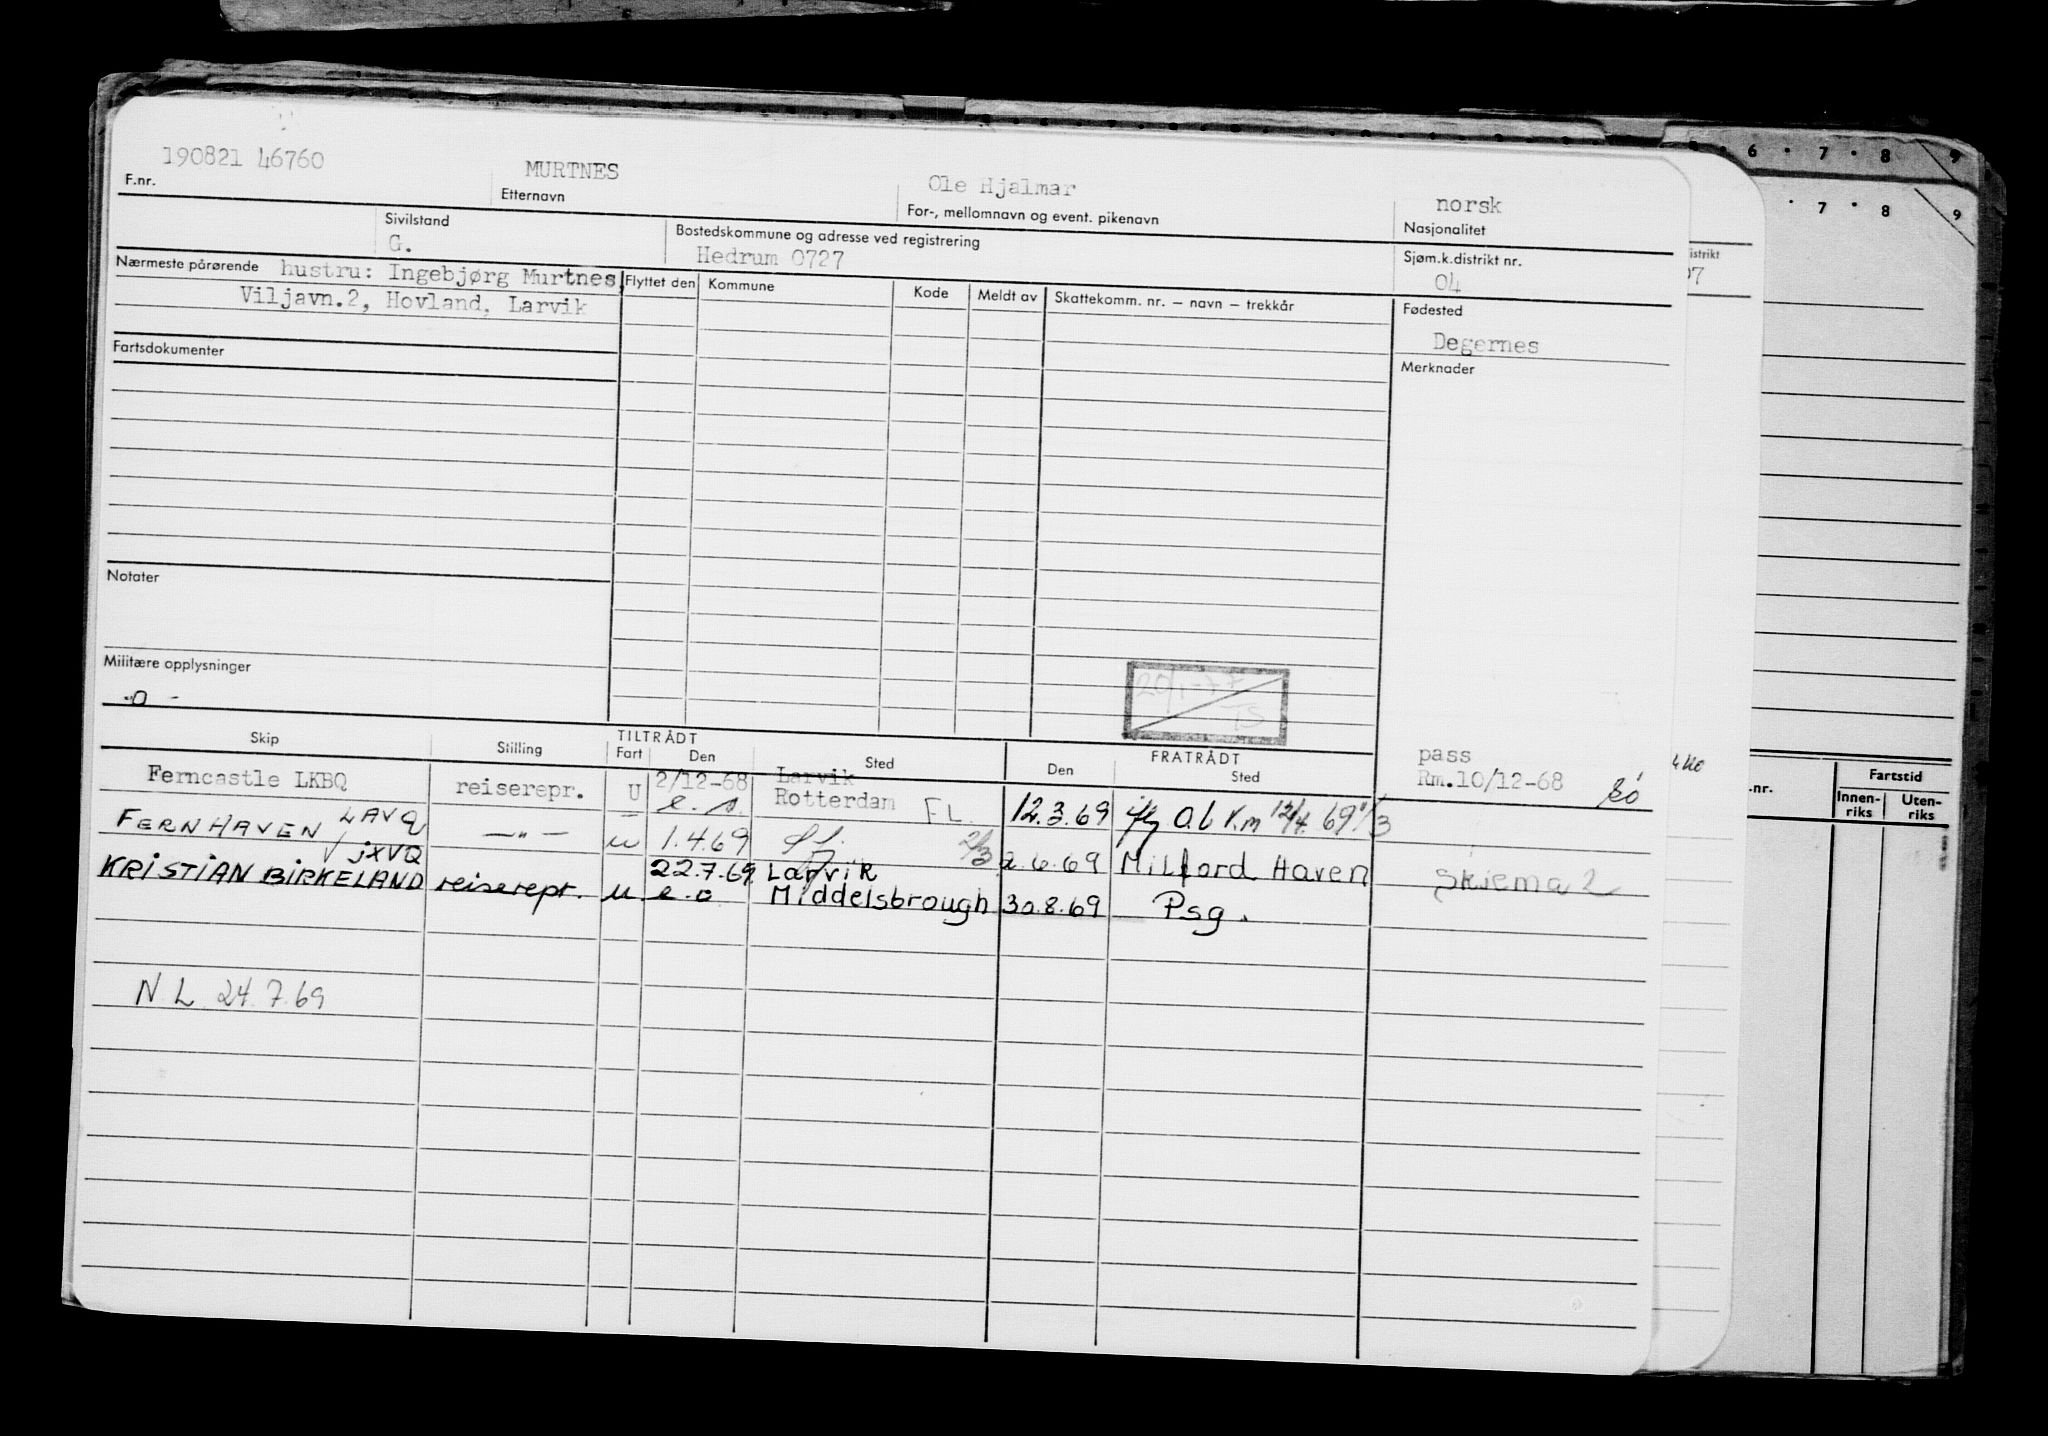 190821 46760 MURTNES Ole Hjalmar norsk
F.nr. Etternavn For-, mellomnavn og event. pikenavn Nasjonalitet
Sivilstand Bostedskommune og adresse ved registrering Sjøm.k.distrikt nr.
G. Hedrum 0727 04
Nærmeste pårørende hustru: Ingebjørg Murtnes, Flyttet den Kommune Kode Meldt av Skattekomm. nr. – navn – trekkår Fødested
Viljavn.2, Hovland, Larvik Degernes
Fartsdokumenter Merknader
Notater
Militære opplysninger
-o-
20/1-77
TS
Skip Stilling TILTRÅDT Fart Den Sted FRATRÅDT Den Sted
pass
Ferncastle LKBQ reiserepr. U 2/12-68 Larvik Rm.10/12-68
e.o. Rotterdam FL. 12.3.69
FERNHAVEN LAVQ —"— u 1.4.69 2.6.69 Milford Haven
KRISTIAN BIRKELAND JXVQ reiserepr. u 22.7.69 Larvik Skjema 2
e.o Middelsbrough 30.8.69 Psg.
N.L 24.7.69
6 7 8 9
7 8 9
istrikt
07
.nr. Fartstid
Innen-riks Uten-riks